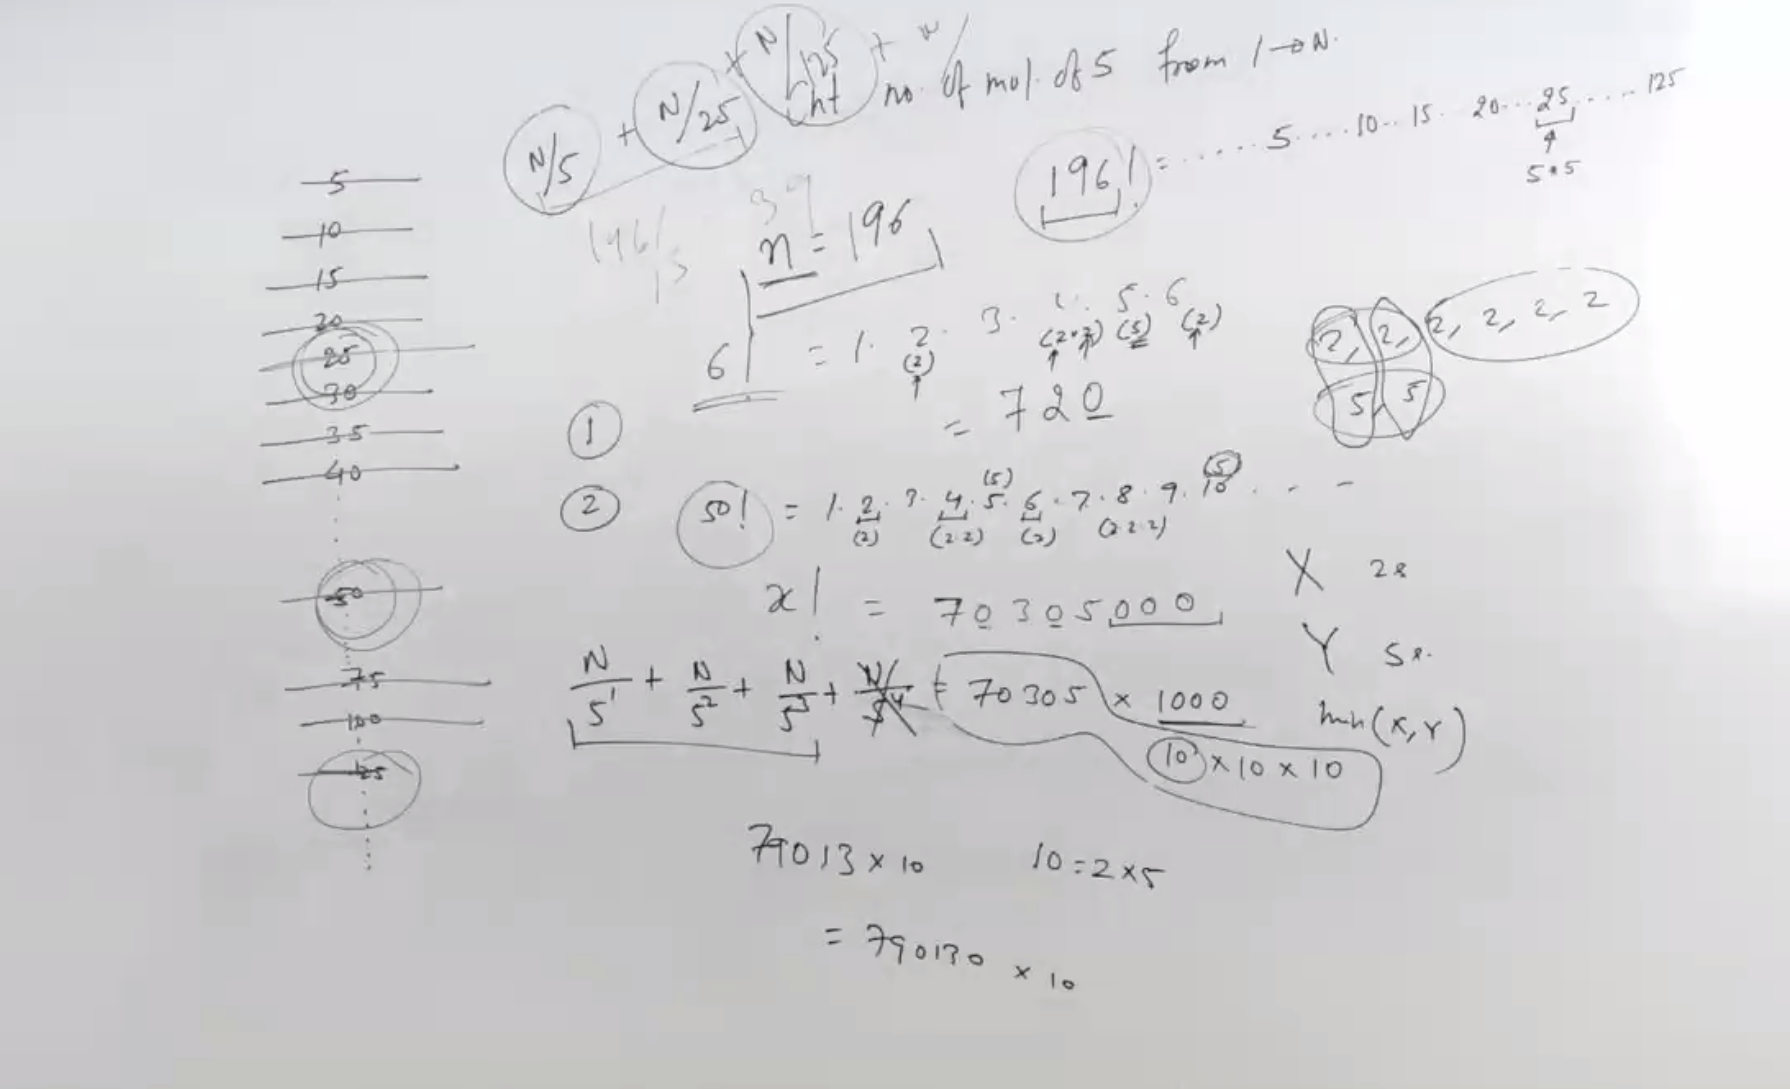 N/5 + N/25 + N/125 +
int
no. of mol. of 5 from 1→N.
196! = ...... 5.... 10.. 15. 20... 25..... 125
5*5
5
10
15
20
25
30
35
40
50
75
100
125
196/5
39
n = 196
6! = 1. 2. 3. 5. 6
(2) (2*2) (5) (2)
= 720
2, 2, 2, 2, 2, 2
5, 5
1
2
50! = 1. 2. 3. 4. 5. 6. 7. 8. 9. 10. . -
(5) (5)
(2) (2.2) (2) (2.2.2)
x! = 70305000
X 2s
Y 5s.
min(X,Y)
N/5¹ + N/5² + N/5³ + N/5⁴
= 70305 x 1000
10 x 10 x 10
79013 x 10
10=2x5
= 790130 x 10